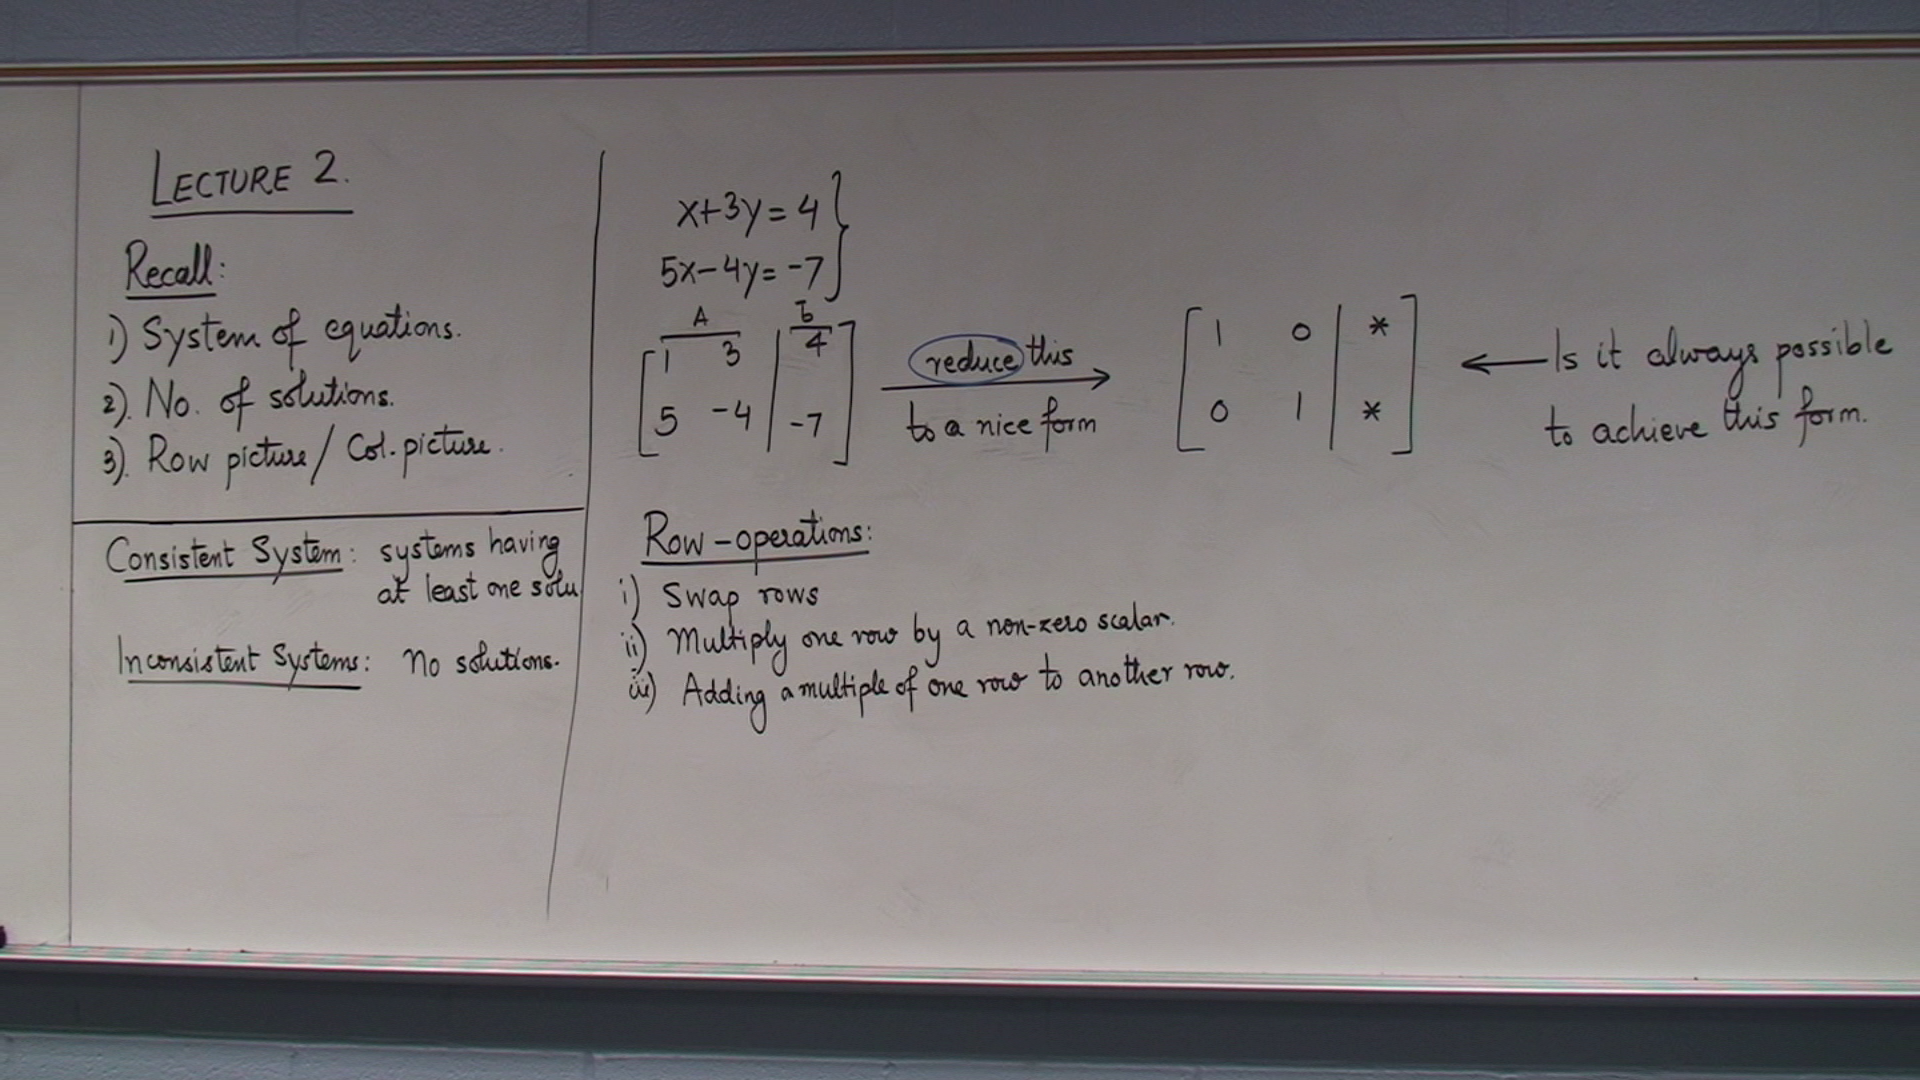 LECTURE 2.
Recall:
1) System of equations.
2). No. of solutions.
3). Row picture / Col. picture.
Consistent System: systems having
at least one solu
Inconsistent Systems: No solutions.
x+3y = 4
5x-4y = -7
A b
1 3 | 4
5 -4 | -7
reduce this
to a nice form
1 0 | *
0 1 | *
Is it always possible
to achieve this form.
Row-operations:
i) Swap rows
ii) Multiply one row by a non-zero scalar.
iii) Adding a multiple of one row to another row.